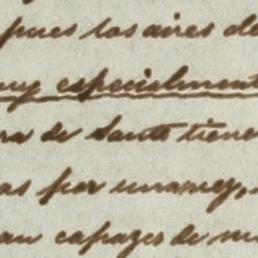 pues los aires de
uy especialment
ra de Santo tiene
as por
an capazes de